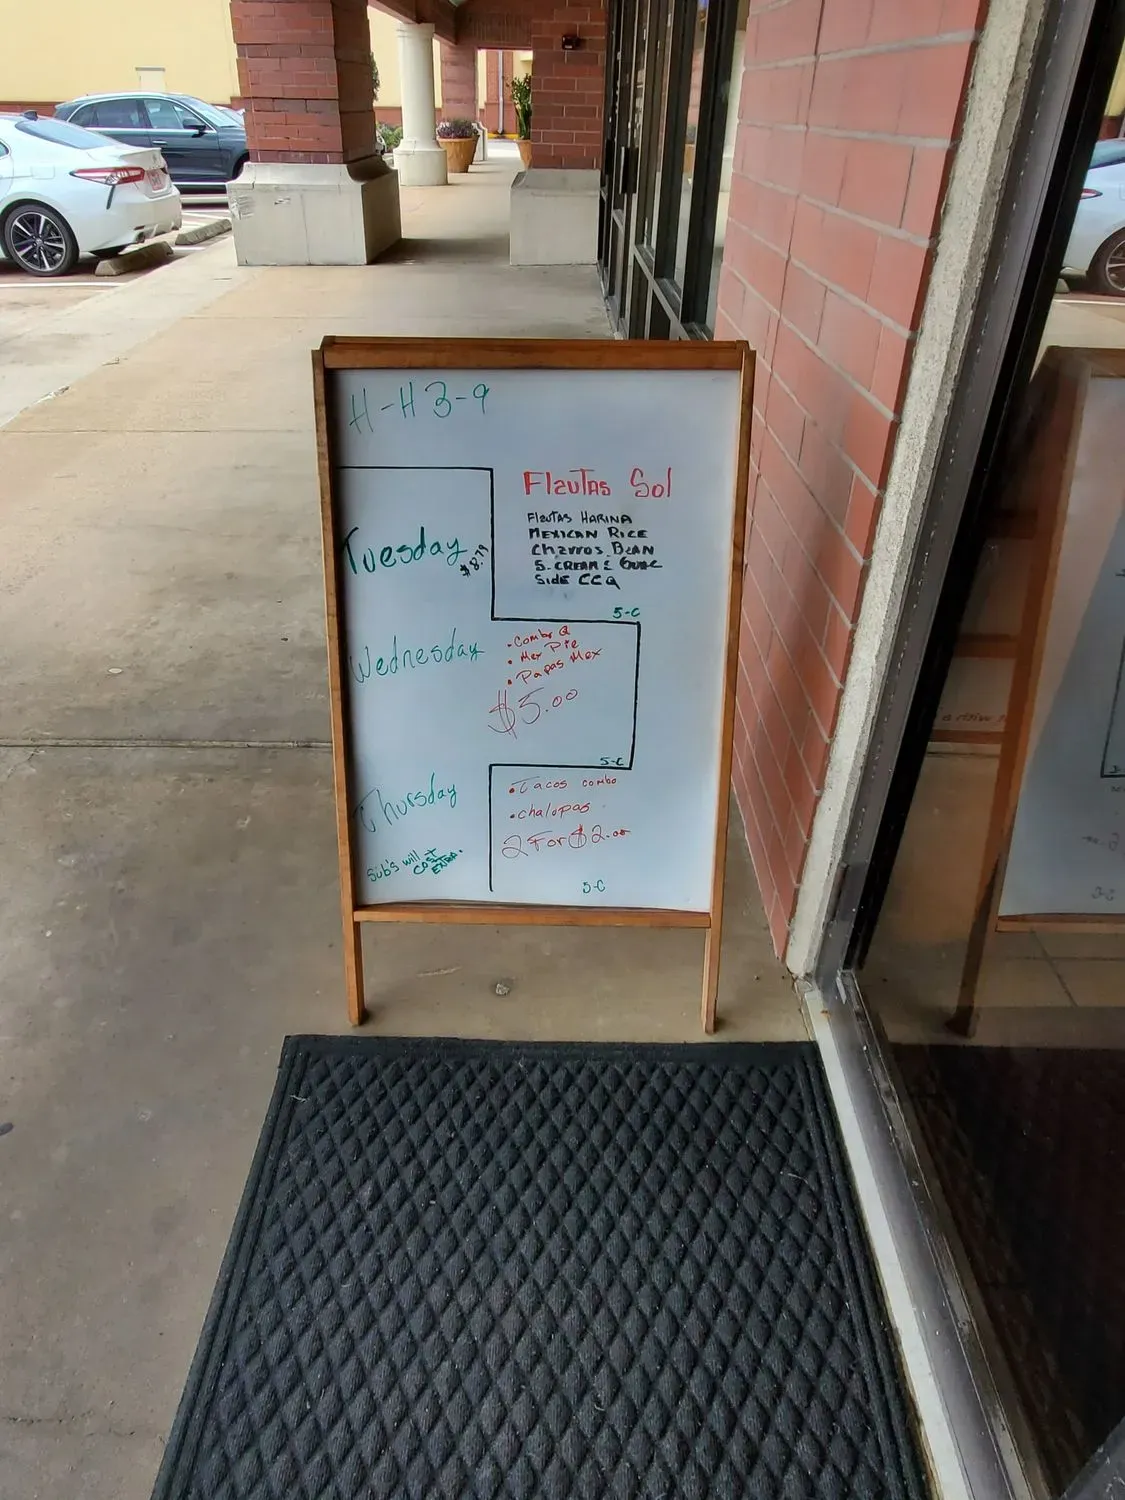 H-H 3-9
Flautas Sol
Flautas Harina
Mexican Rice
Charros Bean
S. Cream & Guac
Side CCQ
Tuesday
$8.79
5-C
Wednesday
• Combo Q
• Mex Pie
• Papas Mex
$5.00
5-C
Thursday
• Tacos combo
• chalopas
2 For $2.00
Sub's will
COST
EXTRA.
5-C